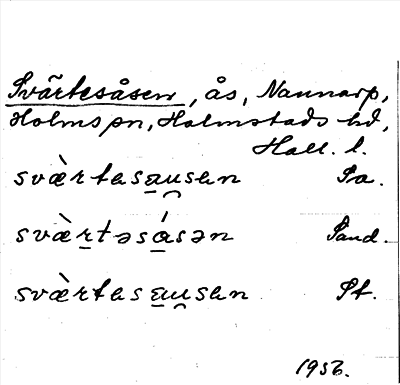 Svärtesåsen, ås, Nannarp,
Holms sn, Halmstads hd,
Hall. l.
svæ̀rtəsa̱u̯sən Sa.
svæ̀ṟtəsá̱sən Sand.
svæ̀rtəsa̱u̯sən St.
1956.